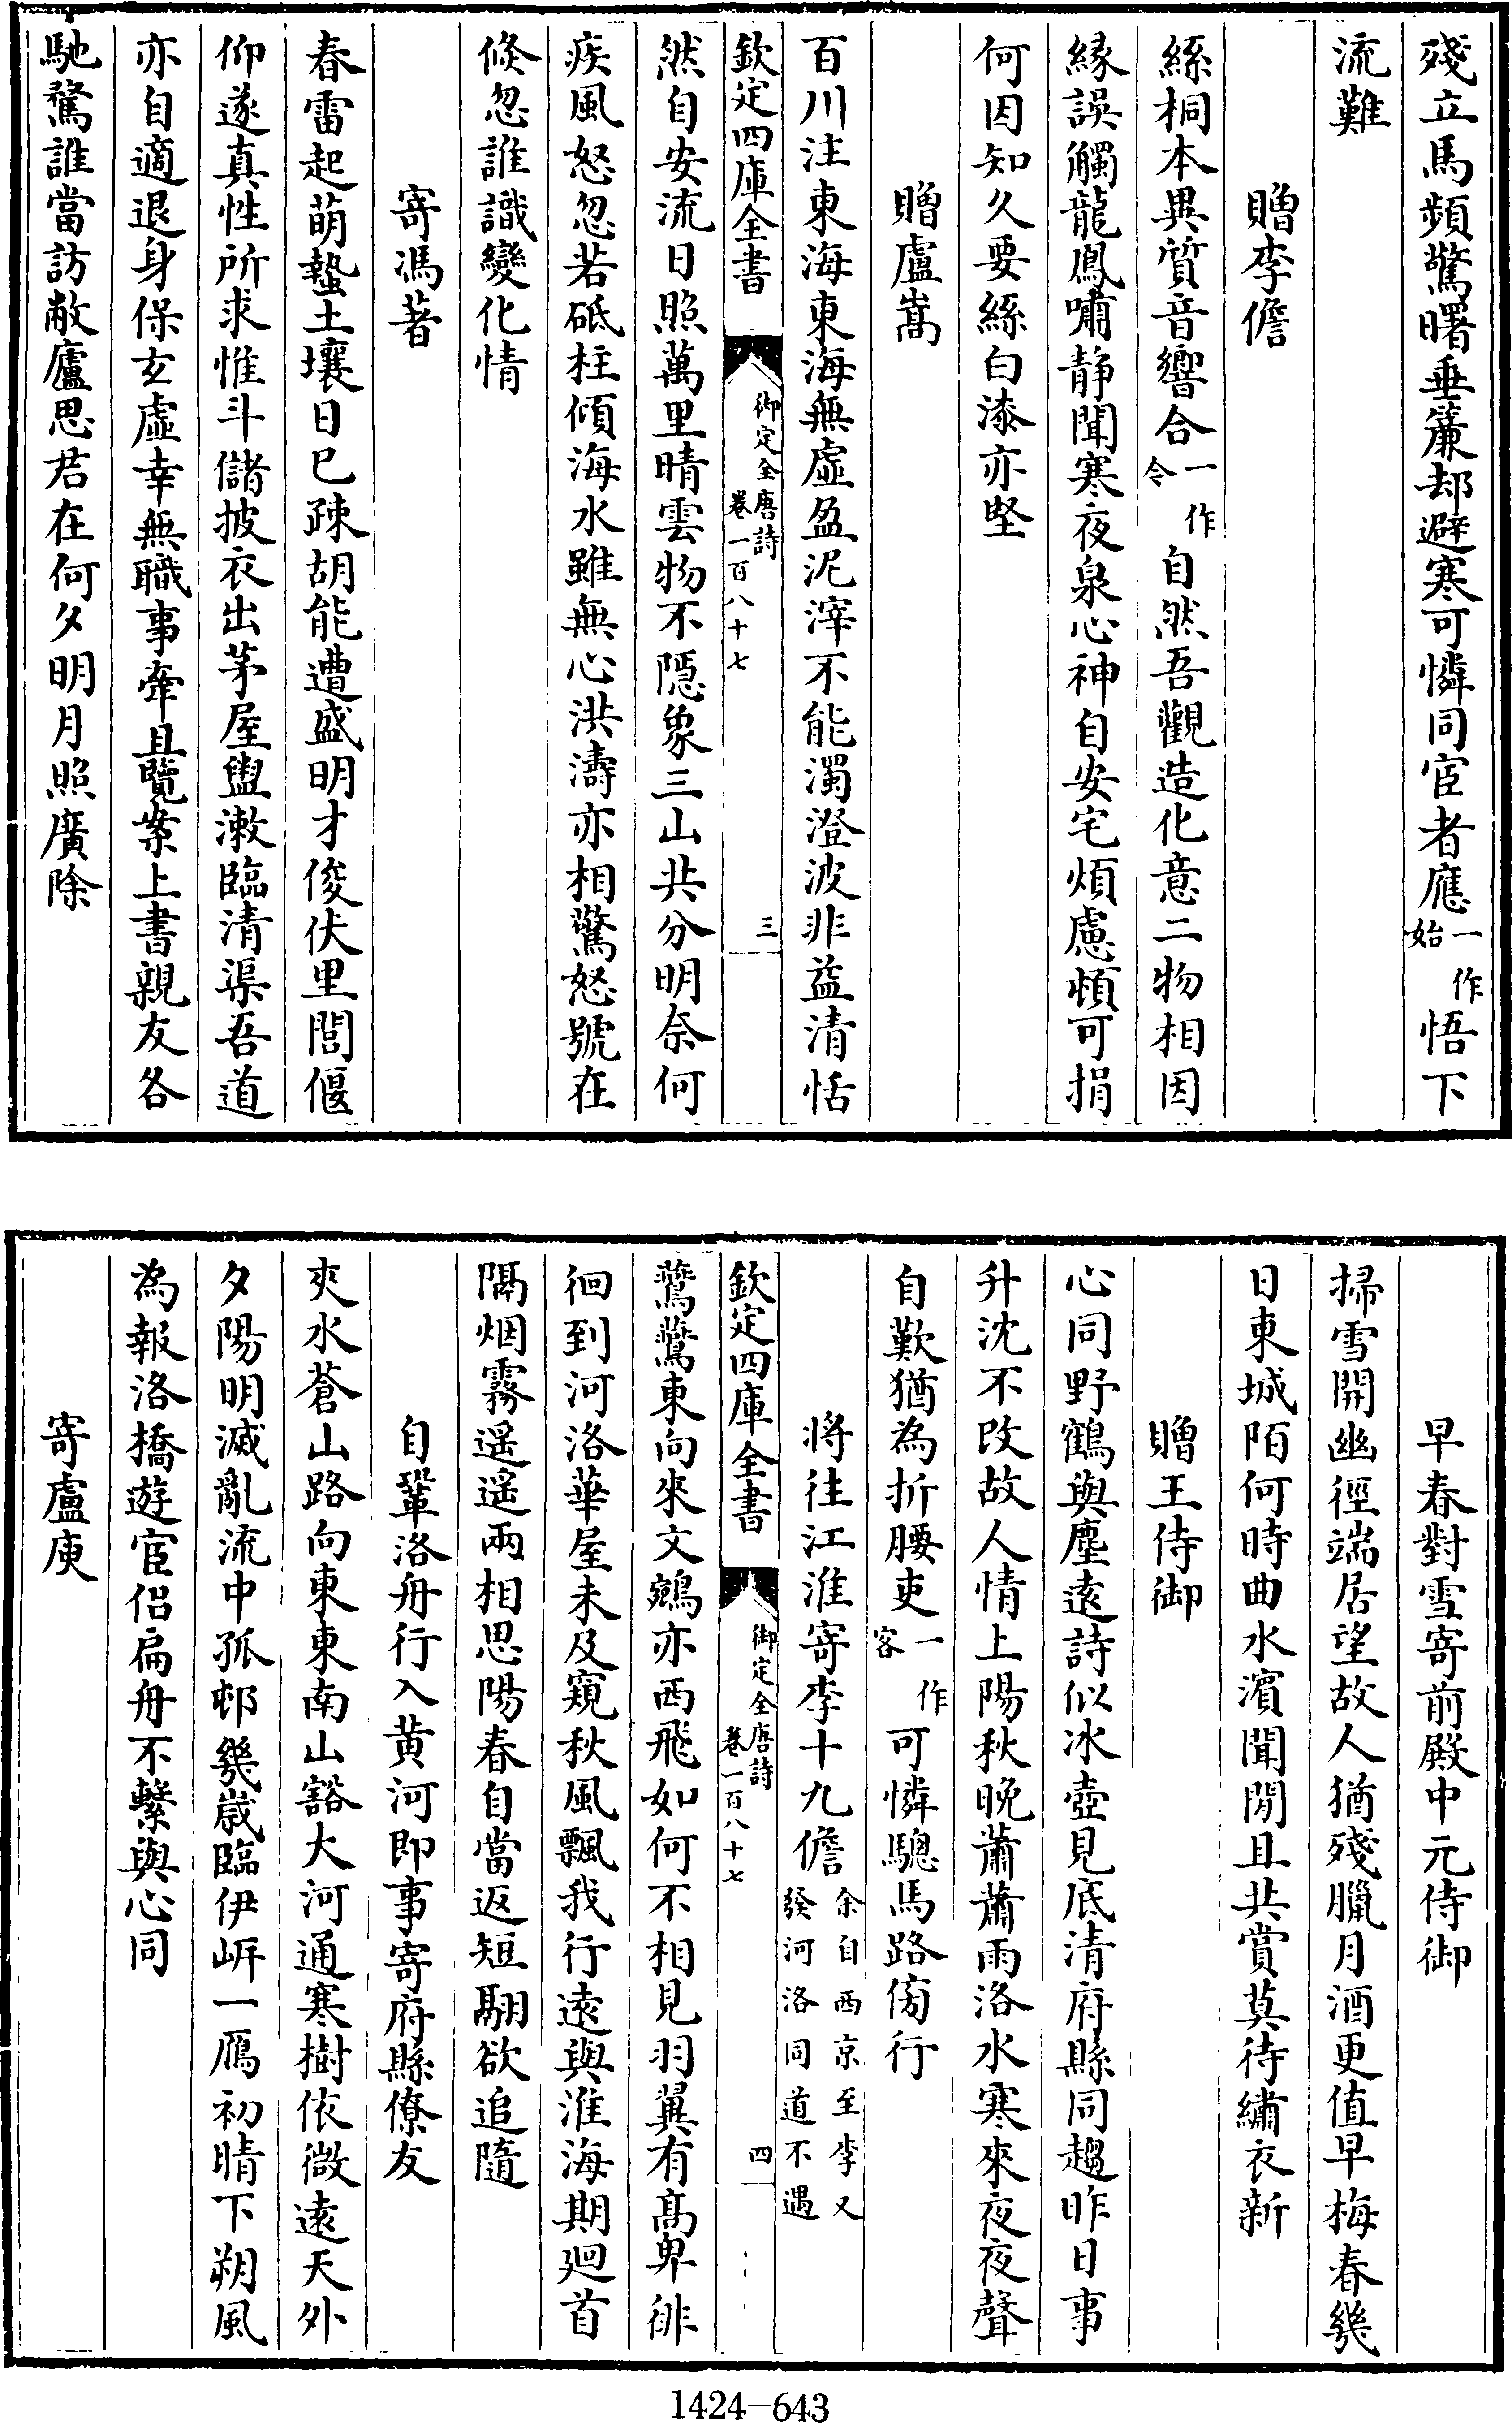 殘立馬頻驚曙垂簾却避寒可憐同宦者應一作始悟下
流難
贈李儋
絲桐本異質音響合一作令自然吾觀造化意二物相因
緣誤觸龍鳳嘯静聞寒夜泉心神自安宅煩慮頓可捐
何因知久要絲白漆亦堅
贈盧嵩
百川注東海東海無虛盈泥滓不能濁澄波非益清恬
欽定四庫全書 御定全唐詩 卷一百八十七 三
然自安流日照萬里晴雲物不隱象三山共分明奈何
疾風怒忽若砥柱傾海水雖無心洪濤亦相驚怒號在
倐忽誰識變化情
寄馮著
春雷起萌蟄土壤日已疎胡能遭盛明才俊伏里閭偃
仰遂真性所求惟斗儲披衣出茅屋盥漱臨清渠吾道
亦自適退身保玄虛幸無職事牽且覽案上書親友各
馳騖誰當訪敝廬思君在何夕明月照廣除
早春對雪寄前殿中元侍御
掃雪開幽徑端居望故人猶殘臘月酒更值早梅春幾
日東城陌何時曲水濱聞閒且共賞莫待繡衣新
贈王侍御
心同野鶴與塵遠詩似冰壺見底清府縣同趨昨日事
升沈不改故人情上陽秋晚蕭蕭雨洛水寒來夜夜聲
自歎猶為折腰吏一作客可憐驄馬路傍行
將往江淮寄李十九儋余自西京至李又發河洛同道不遇
欽定四庫全書 御定全唐詩 卷一百八十七 四
鷰鷰東向來文鵷亦西飛如何不相見羽翼有髙卑徘
徊到河洛華屋未及窺秋風飄我行遠與淮海期廻首
隔烟霧遥遥兩相思陽春自當返短翮欲追隨
自鞏洛舟行入黄河即事寄府縣僚友
夾水蒼山路向東東南山豁大河通寒樹依微遠天外
夕陽明滅亂流中孤邨幾歳臨伊岍一鴈初晴下朔風
為報洛橋遊宦侣扁舟不繫與心同
寄盧庾
1424—643